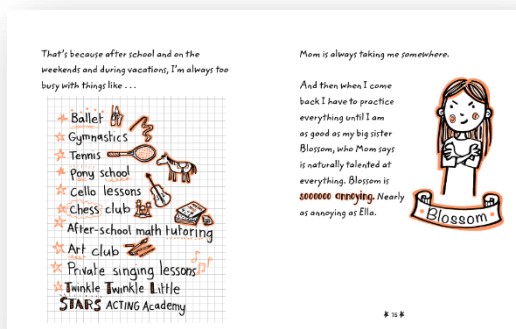 That's because after school and on the
weekends and during vacations, I'm always too
busy with things like . . .
Ballet
Gymnastics
Tennis
Pony school
Cello lessons
Chess club
After-school math tutoring
Art club
Private singing lessons
Twinkle Twinkle Little
STARS ACTING Academy
Mom is always taking me somewhere.
And then when I come
back I have to practice
everything until I am
as good as my big sister
Blossom, who Mom says
is naturally talented at
everything. Blossom is
soooooo annoying. Nearly
as annoying as Ella.
Blossom